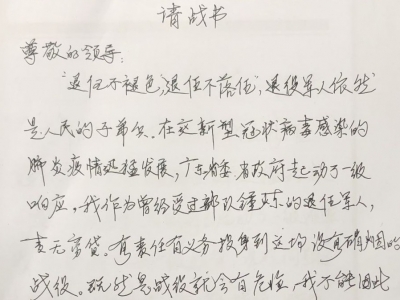 请战书
尊敬的领导:
“退伍不褪色,退伍不落伍”,退役军人依然
是人民的子弟兵、在这新型冠状病毒感染的
肺炎疫情迅猛发展,广东省委、省政府起动了一级
响应,我作为曾经受过部队锤炼的退伍军人,
责无旁贷。有责任有义务投身到这场没有硝烟的
战役。既然是战役就会有危险,我不能因此